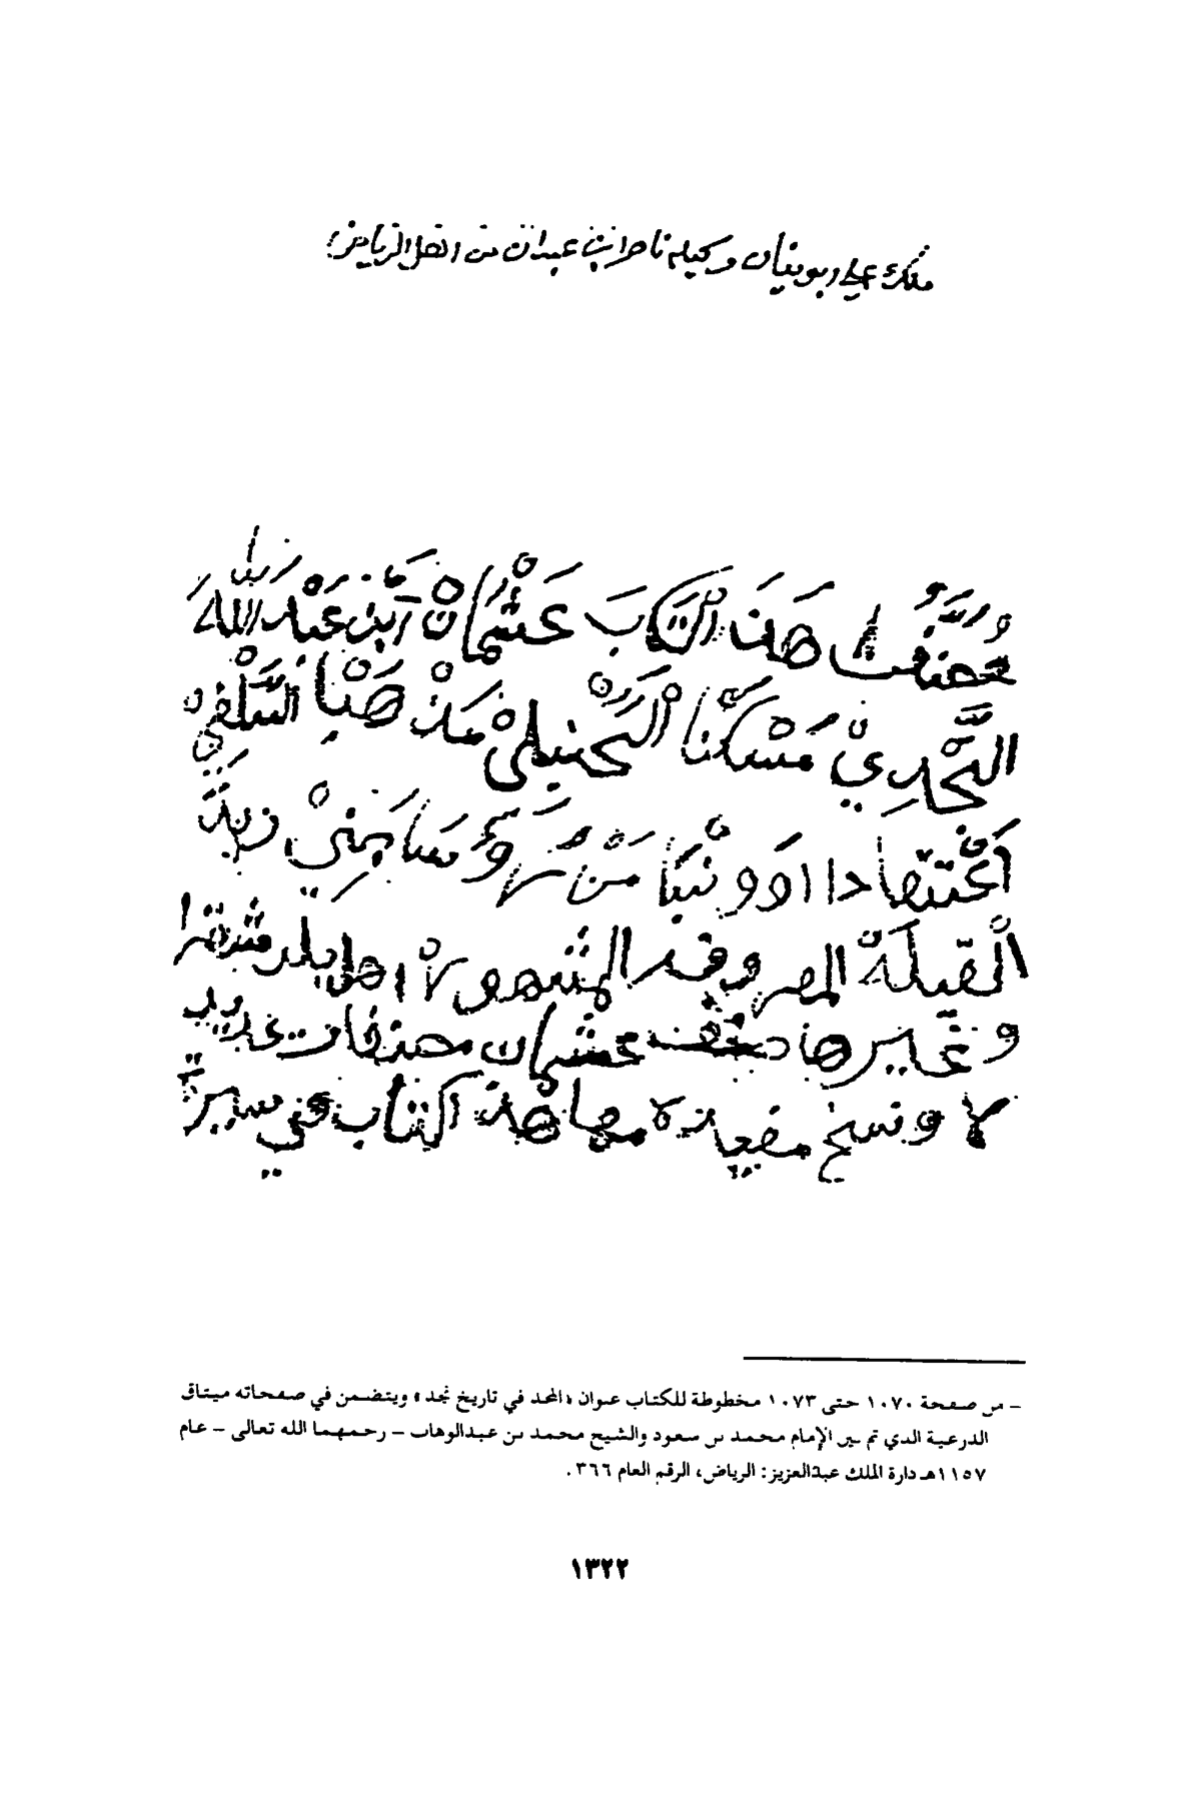 ملك علي ابو بنيان وكيله ناصر ابن عبدان من اهل الرياض
وَمُصَنِّفُ هَذَ الْكِتَابَ عَثْمَانْ اَبْنْ عَبْدَ اللهَ
النَّجْدِيْ مَسْكَنَا الْحَنْبَلِيْ مَذْهَبَا السَّلَفِيْ
اعْتِقَادا مِنْ بَنِيْ زيد
الْقَبِيلَةْ المعروفه المشهورة اهل بلد شقرا
وغيرها خلف عثمان مصنفات عديد
لا ونسخ مفيعة منها هذا الكتاب في سيرة
- من صفحة ١٠٧٠ حتى ١٠٧٣ مخطوطة للكتاب عنوان «المجد في تاريخ نجد» ويتضمن في صفحاته ميثاق
الدرعية الذي تم بين الإمام محمد بن سعود والشيخ محمد بن عبدالوهاب - رحمهما الله تعالى - عام
١١٥٧هـ دارة الملك عبدالعزيز: الرياض، الرقم العام ٣٦٦.
١٣٢٢